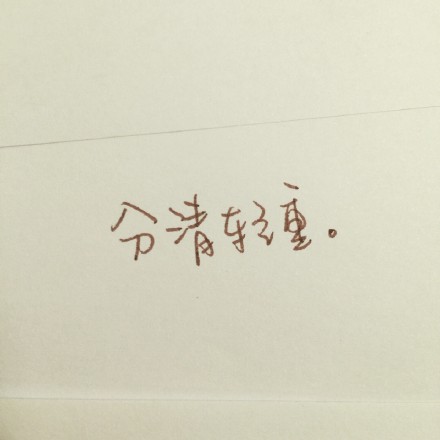 分清轻重。